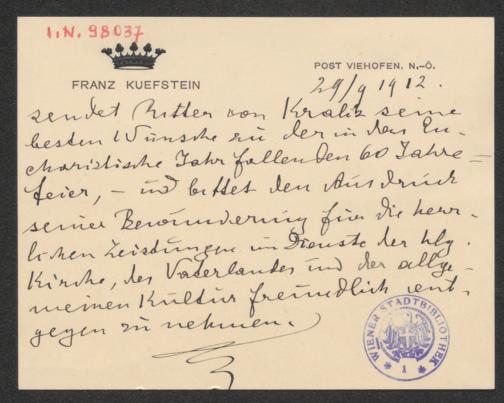 I.N. 98037
FRANZ KUEFSTEIN
POST VIEHOFEN, N.-Ö.
29/9 1912.
sendet Ritter von Kralik seine
besten Wünsche zu der in das Eu-
charistische Jahr fallenden 60 Jahr=
feier, – und bittet den Ausdruck
seiner Bewunderung für die herr-
lichen Leistungen im Dienste der hlg.
Kirche, des Vaterlandes und der allge-
meinen Kultur freundlich ent-
gegen zu nehmen.
WIENER STADTBIBLIOTHEK
* 1 *